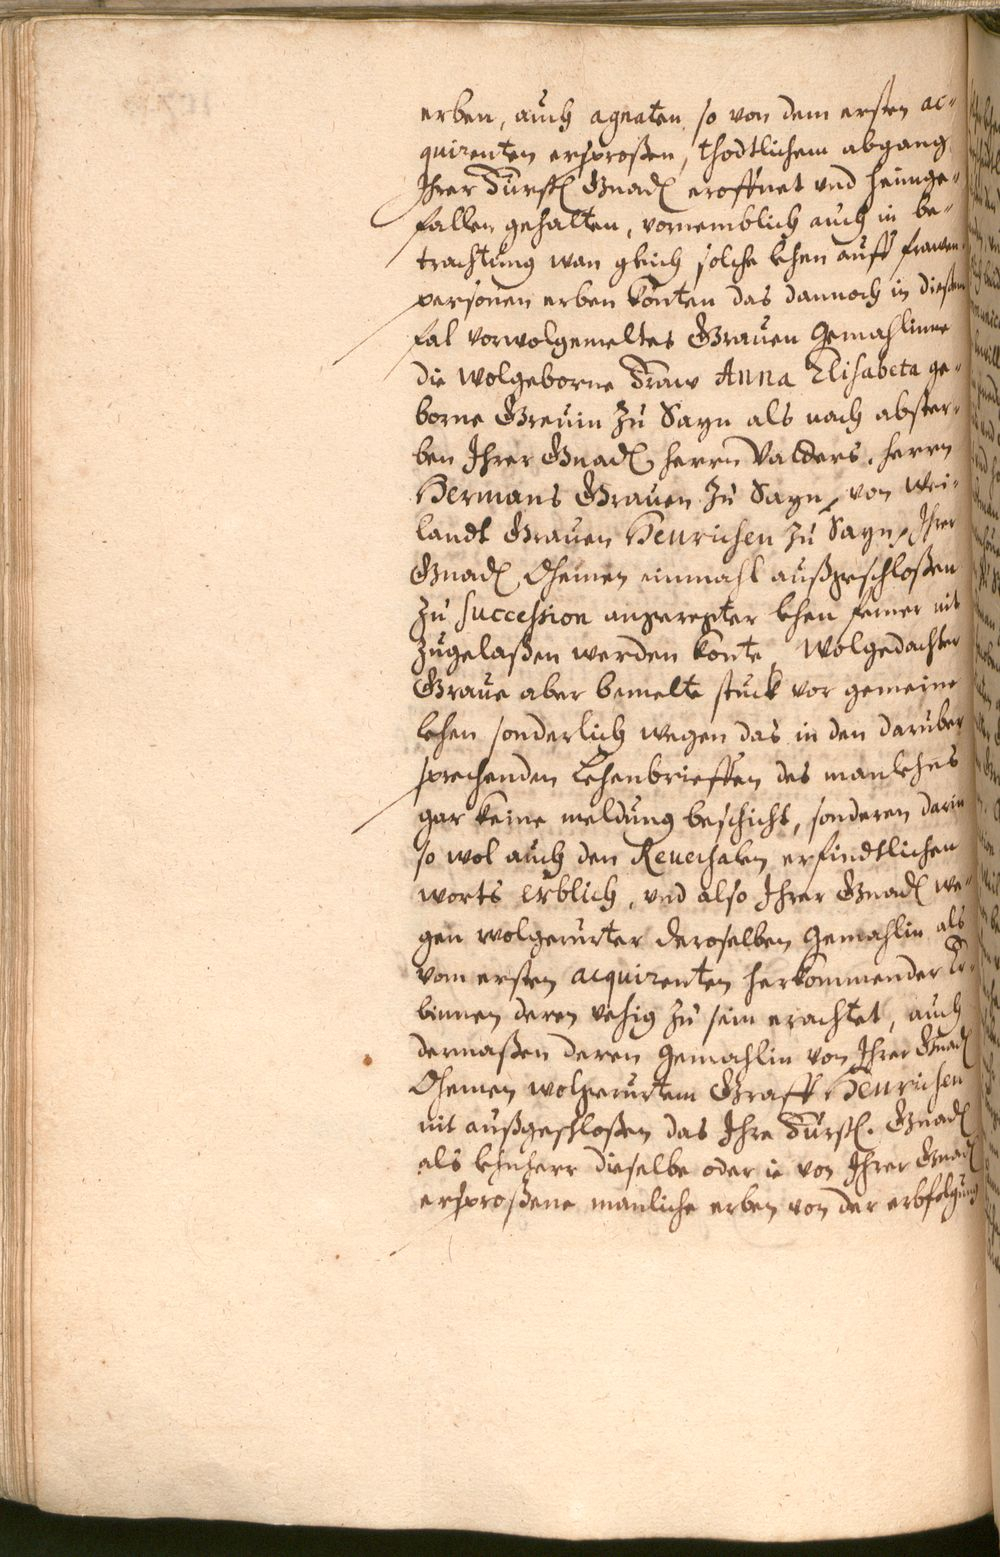 erben, auch agnaten so von dem ersten ac-
quirenten ersproßen, thodtlichem abgang
Ihrer Fürstl Gnad eroffnet und heimge-
fallen gehalten, vornemblich auch in be-
trachtung wan gleich solche lehen auff frawen
personen erben könten das dannoch in diesem
fal vorwolgemeltes Grauen Gemahlinne
die Wolgeborne Fraw Anna Elisabeta ge-
borne Greuin zu Sayn als nach abster-
ben Ihrer Gnad herrn Vatters, herrn
Hermans Grauen zu Sayn, von Wei-
landt Grauen Henrichen zu Sayn, Ihrer
Gnad Ohemen einmahl außgeschloßen
zu succession angeregter lehen ferner nit
zugelaßen werden konte, Wolgedachter
Graue aber bemelte stuck vor gemeine
lehen sonderlich wegen das in den darüber
sprechenden Lehenbrieffen des manlehns
gar keine meldung beschicht, sonderen darin
so wol auch den Reuersalen erfindtlichen
worts erblich, und also Ihrer Gnad we-
gen wolgerurter deroselben Gemahlin als
vom ersten acquirenten herkommender Er-
binnen deren vehig zu sein erachtet, auch
dermaßen deren Gemahlin von Ihrer Gnad
Ohemen wolgerurtem Graff Henrichen
nit außgeschloßen das Ihre Fürstl. Gnad
als lehnherr dieselbe oder ie von Ihrer Gnad
ersproßene manliche erben von der erbfolgung